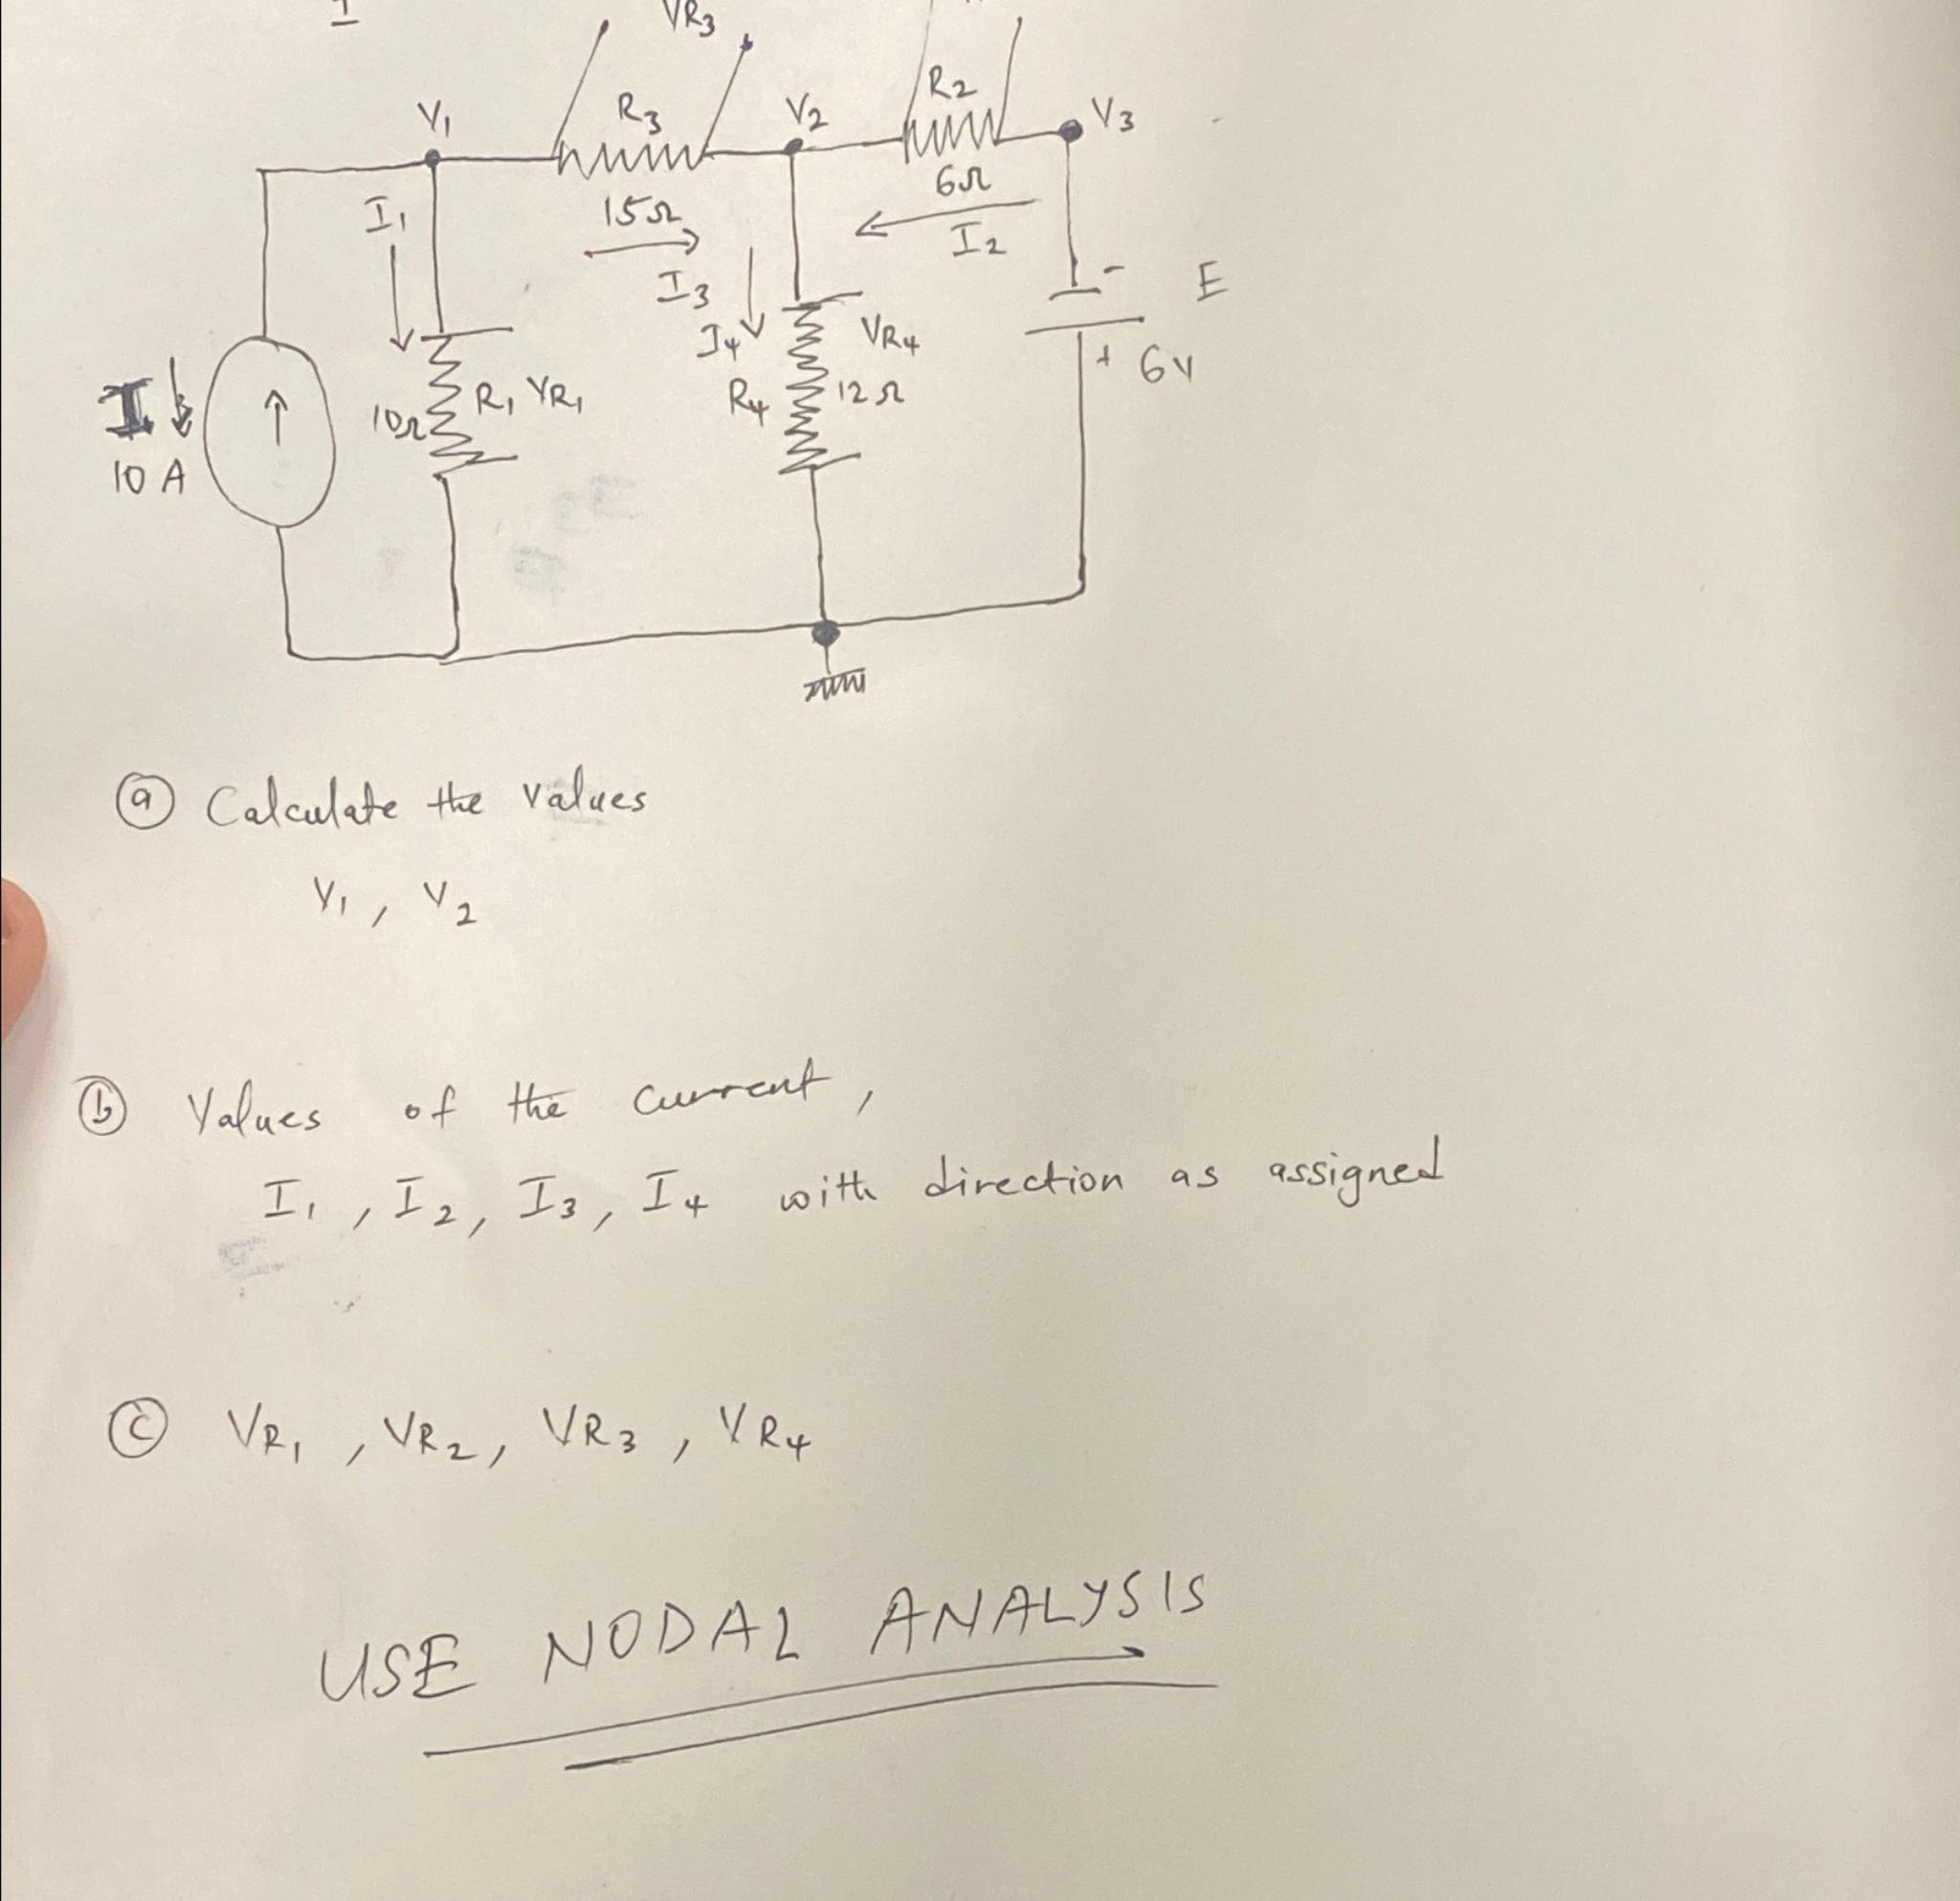 I
VR3
V1
R3
V2
R2
V3
I1
15Ω
6Ω
I3
I2
- E
I4
VR4
+ 6V
I
10Ω
R1 VR1
R4
12Ω
10 A
(a) Calculate the values
V1, V2
(b) Values of the current,
I1, I2, I3, I4 with direction as assigned
(c) VR1, VR2, VR3, VR4
USE NODAL ANALYSIS